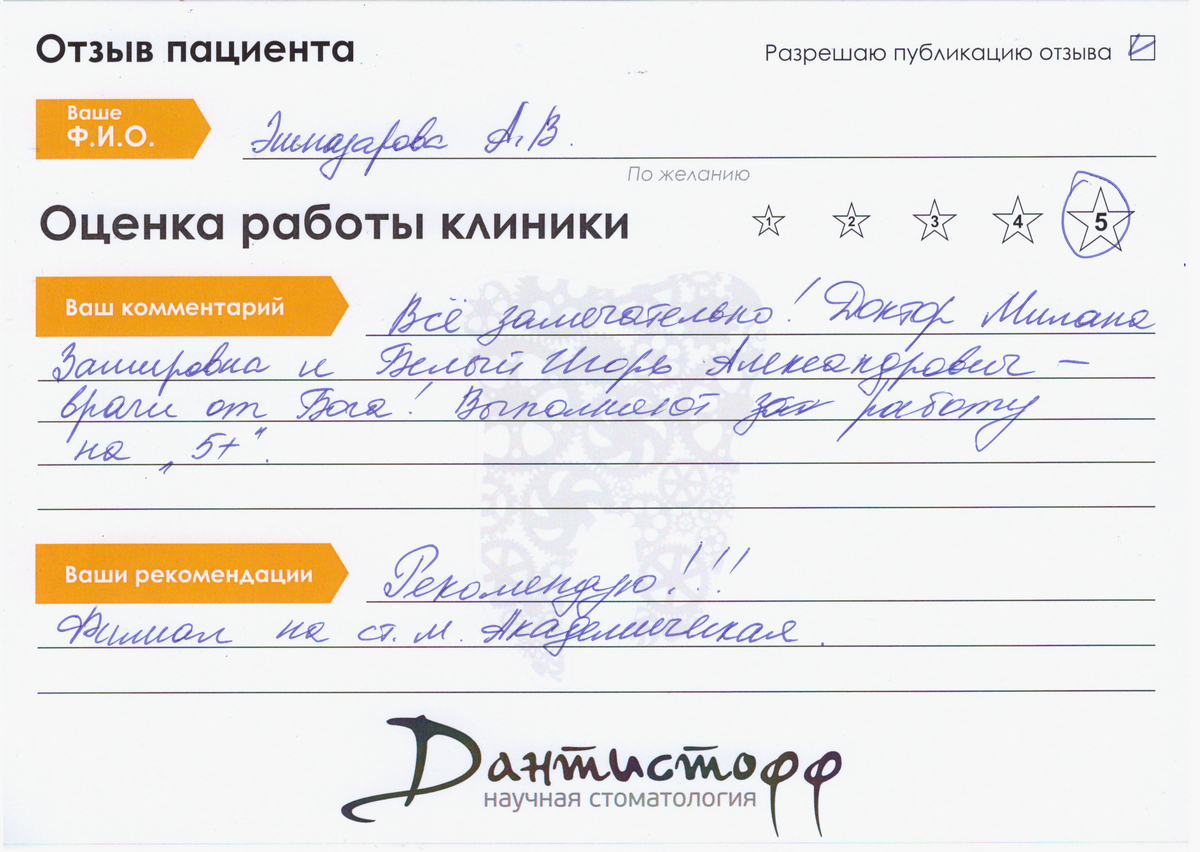 Отзыв пациента
Разрешаю публикацию отзыва
Ваше
Ф.И.О.
Эшназарова А.В.
По желанию
Оценка работы клиники
1 2 3 4 5
Ваш комментарий
Всё замечательно! Доктор Милана
Замировна и Белый Игорь Александрович –
врачи от Бога! Выполняют работу
на „5+“.
Ваши рекомендации
Рекомендую!!!
Филиал на ст. м. Академическая.
Дантистофф
научная стоматология